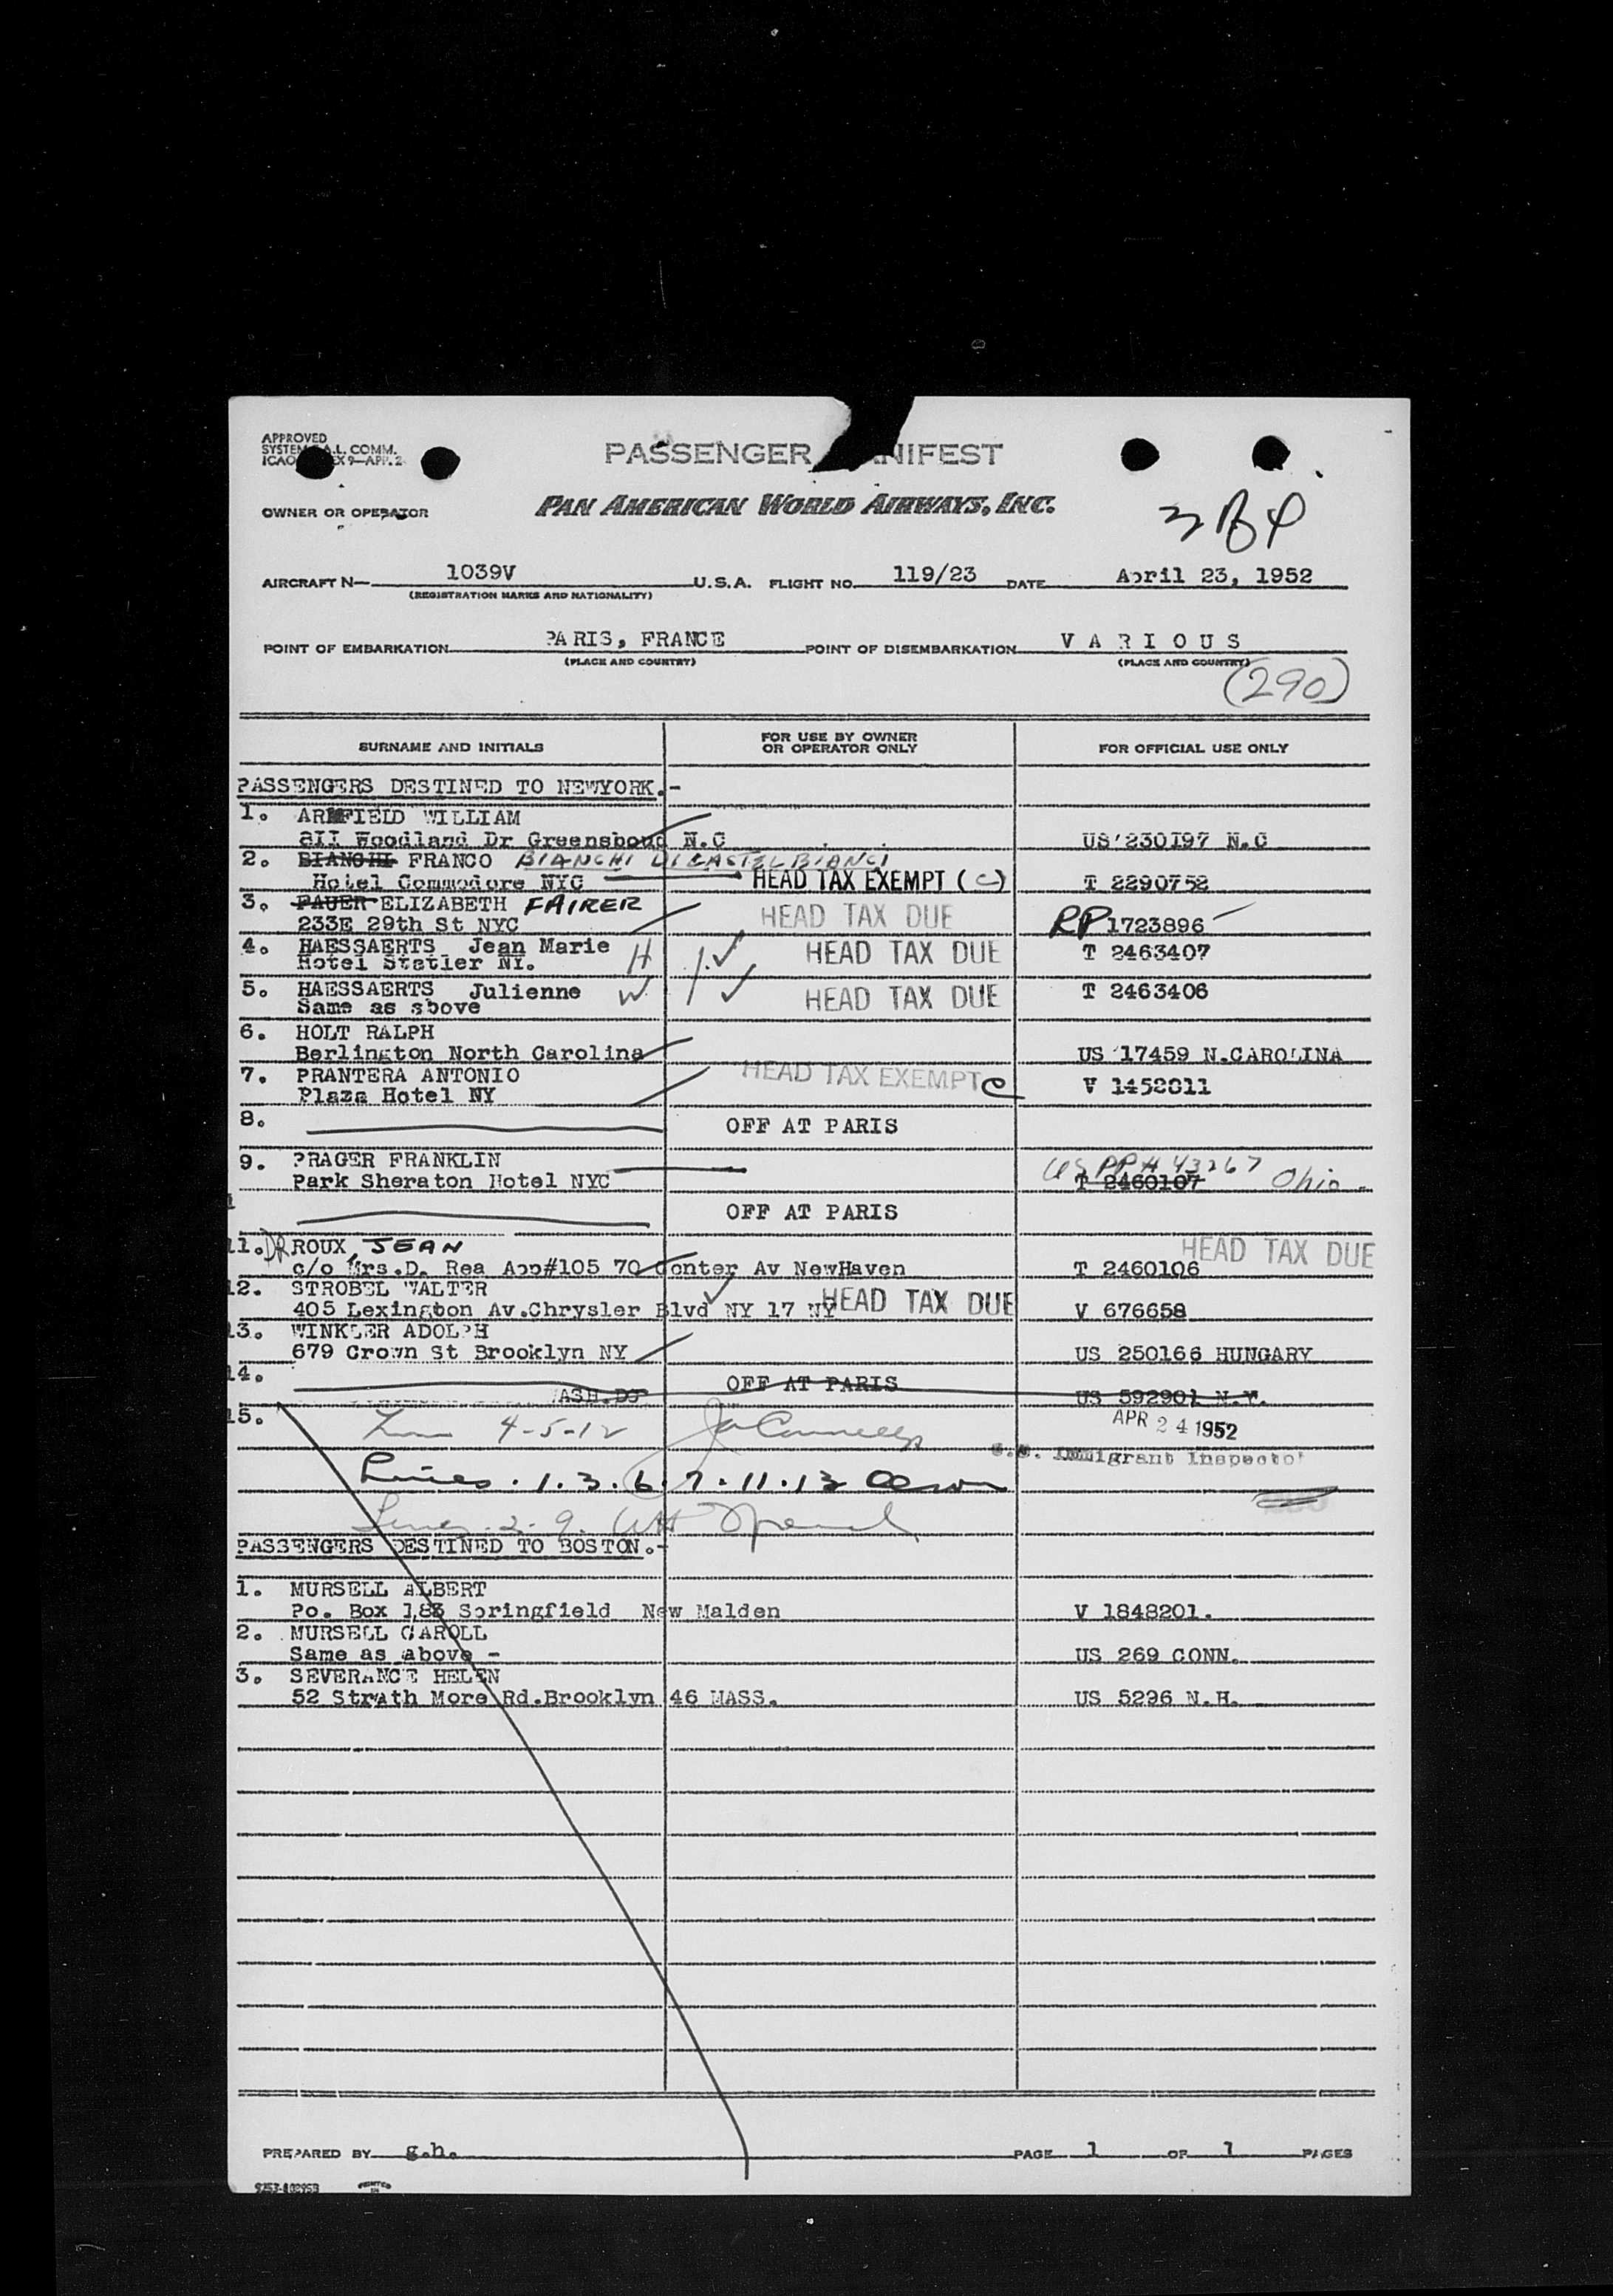 APPROVED
SYSTEM A.L. COMM.
ICAO EX 9—APP. 2
PASSENGER MANIFEST
OWNER OR OPERATOR
PAN AMERICAN WORLD AIRWAYS, INC.
AIRCRAFT N— 1039V U.S.A. FLIGHT NO. 119/23 DATE April 23, 1952
(REGISTRATION MARKS AND NATIONALITY)
POINT OF EMBARKATION PARIS, FRANCE POINT OF DISEMBARKATION V A R I O U S
(PLACE AND COUNTRY) (PLACE AND COUNTRY)
(290)
SURNAME AND INITIALS FOR USE BY OWNER OR OPERATOR ONLY FOR OFFICIAL USE ONLY
PASSENGERS DESTINED TO NEWYORK.-
1. ARMFIELD WILLIAM
811 Woodland Dr Greensboud N.C US 230197 N.C
2. BIANCHI FRANCO BIANCHI DI CASTELBIANCI
Hotel Commodore NYC HEAD TAX EXEMPT (C) T 2290752
3. PAUER ELIZABETH FAIRER
233E 29th St NYC HEAD TAX DUE RP 1723896
4. HAESSAERTS Jean Marie H
Hotel Statler NY. HEAD TAX DUE T 2463407
5. HAESSAERTS Julienne W
Same as above HEAD TAX DUE T 2463406
6. HOLT RALPH
Berlington North Carolina US 17459 N.CAROLINA
7. PRANTERA ANTONIO HEAD TAX EXEMPT C
Plaza Hotel NY V 1452811
8. OFF AT PARIS
9. PRAGER FRANKLIN US PP# 43267 Ohio
Park Sheraton Hotel NYC T 2460107
OFF AT PARIS
11. DR ROUX, JEAN HEAD TAX DUE
c/o Mrs.D. Rea App#105 70 Conter Av NewHaven T 2460106
12. STROBEL WALTER
405 Lexington Av.Chrysler Blvd NY 17 NY HEAD TAX DUE V 676658
13. WINKLER ADOLPH
679 Crown St Brooklyn NY US 250166 HUNGARY
14. OFF AT PARIS
WASH.DC US 592901 N.Y.
15. 4-5-12 APR 24 1952
U.S. Immigrant Inspector
Lines . 1. 3. 6. 7. 11. 13
Lines. 2. 9.
PASSENGERS DESTINED TO BOSTON.-
1. MURSELL ALBERT
Po. Box 183 Springfield New Malden V 1848201.
2. MURSELL CAROLL
Same as above - US 269 CONN.
3. SEVERANCE HELEN
52 Strath More Rd.Brooklyn 46 MASS. US 5296 N.H.
PREPARED BY g.h. PAGE 1 OF 1 PAGES